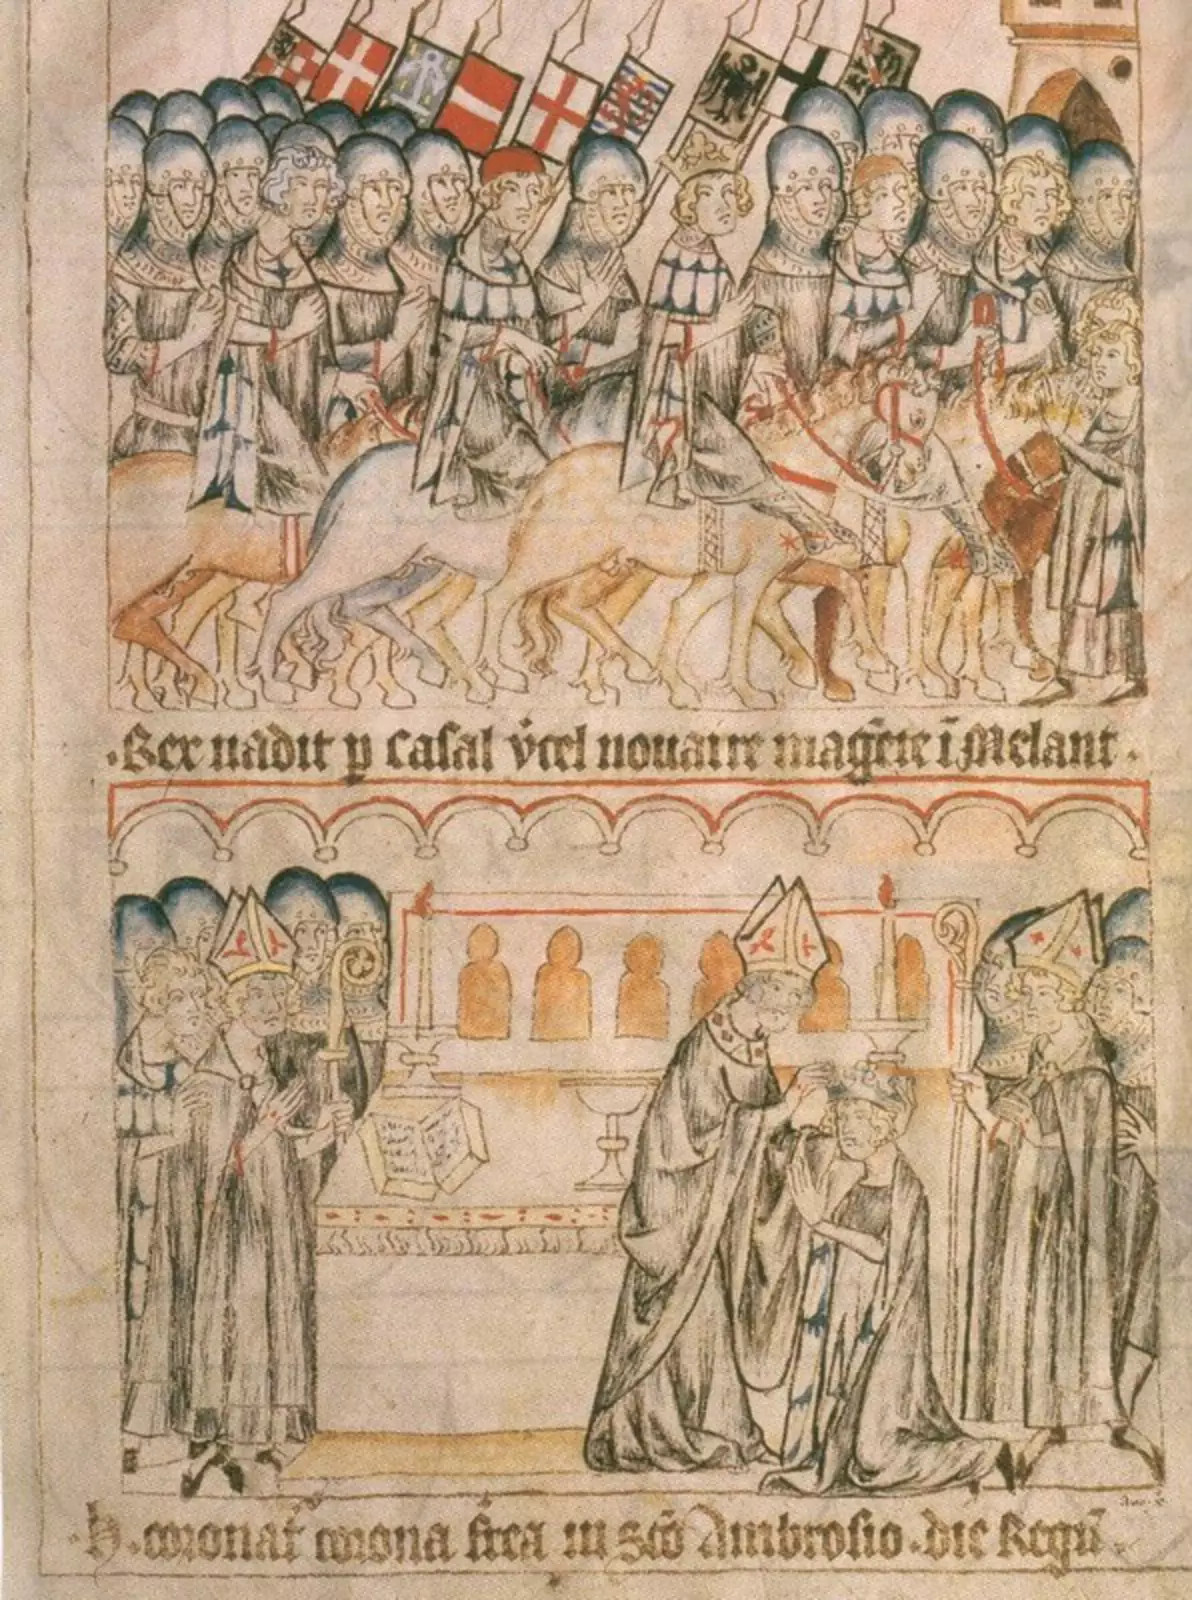 Rex uadit p casal v̓cel nouaire mag̅t̅e i̅ Melant
H. coronat̓ corona fr̅ea in sc̅o Ambrosio .die Regu̅